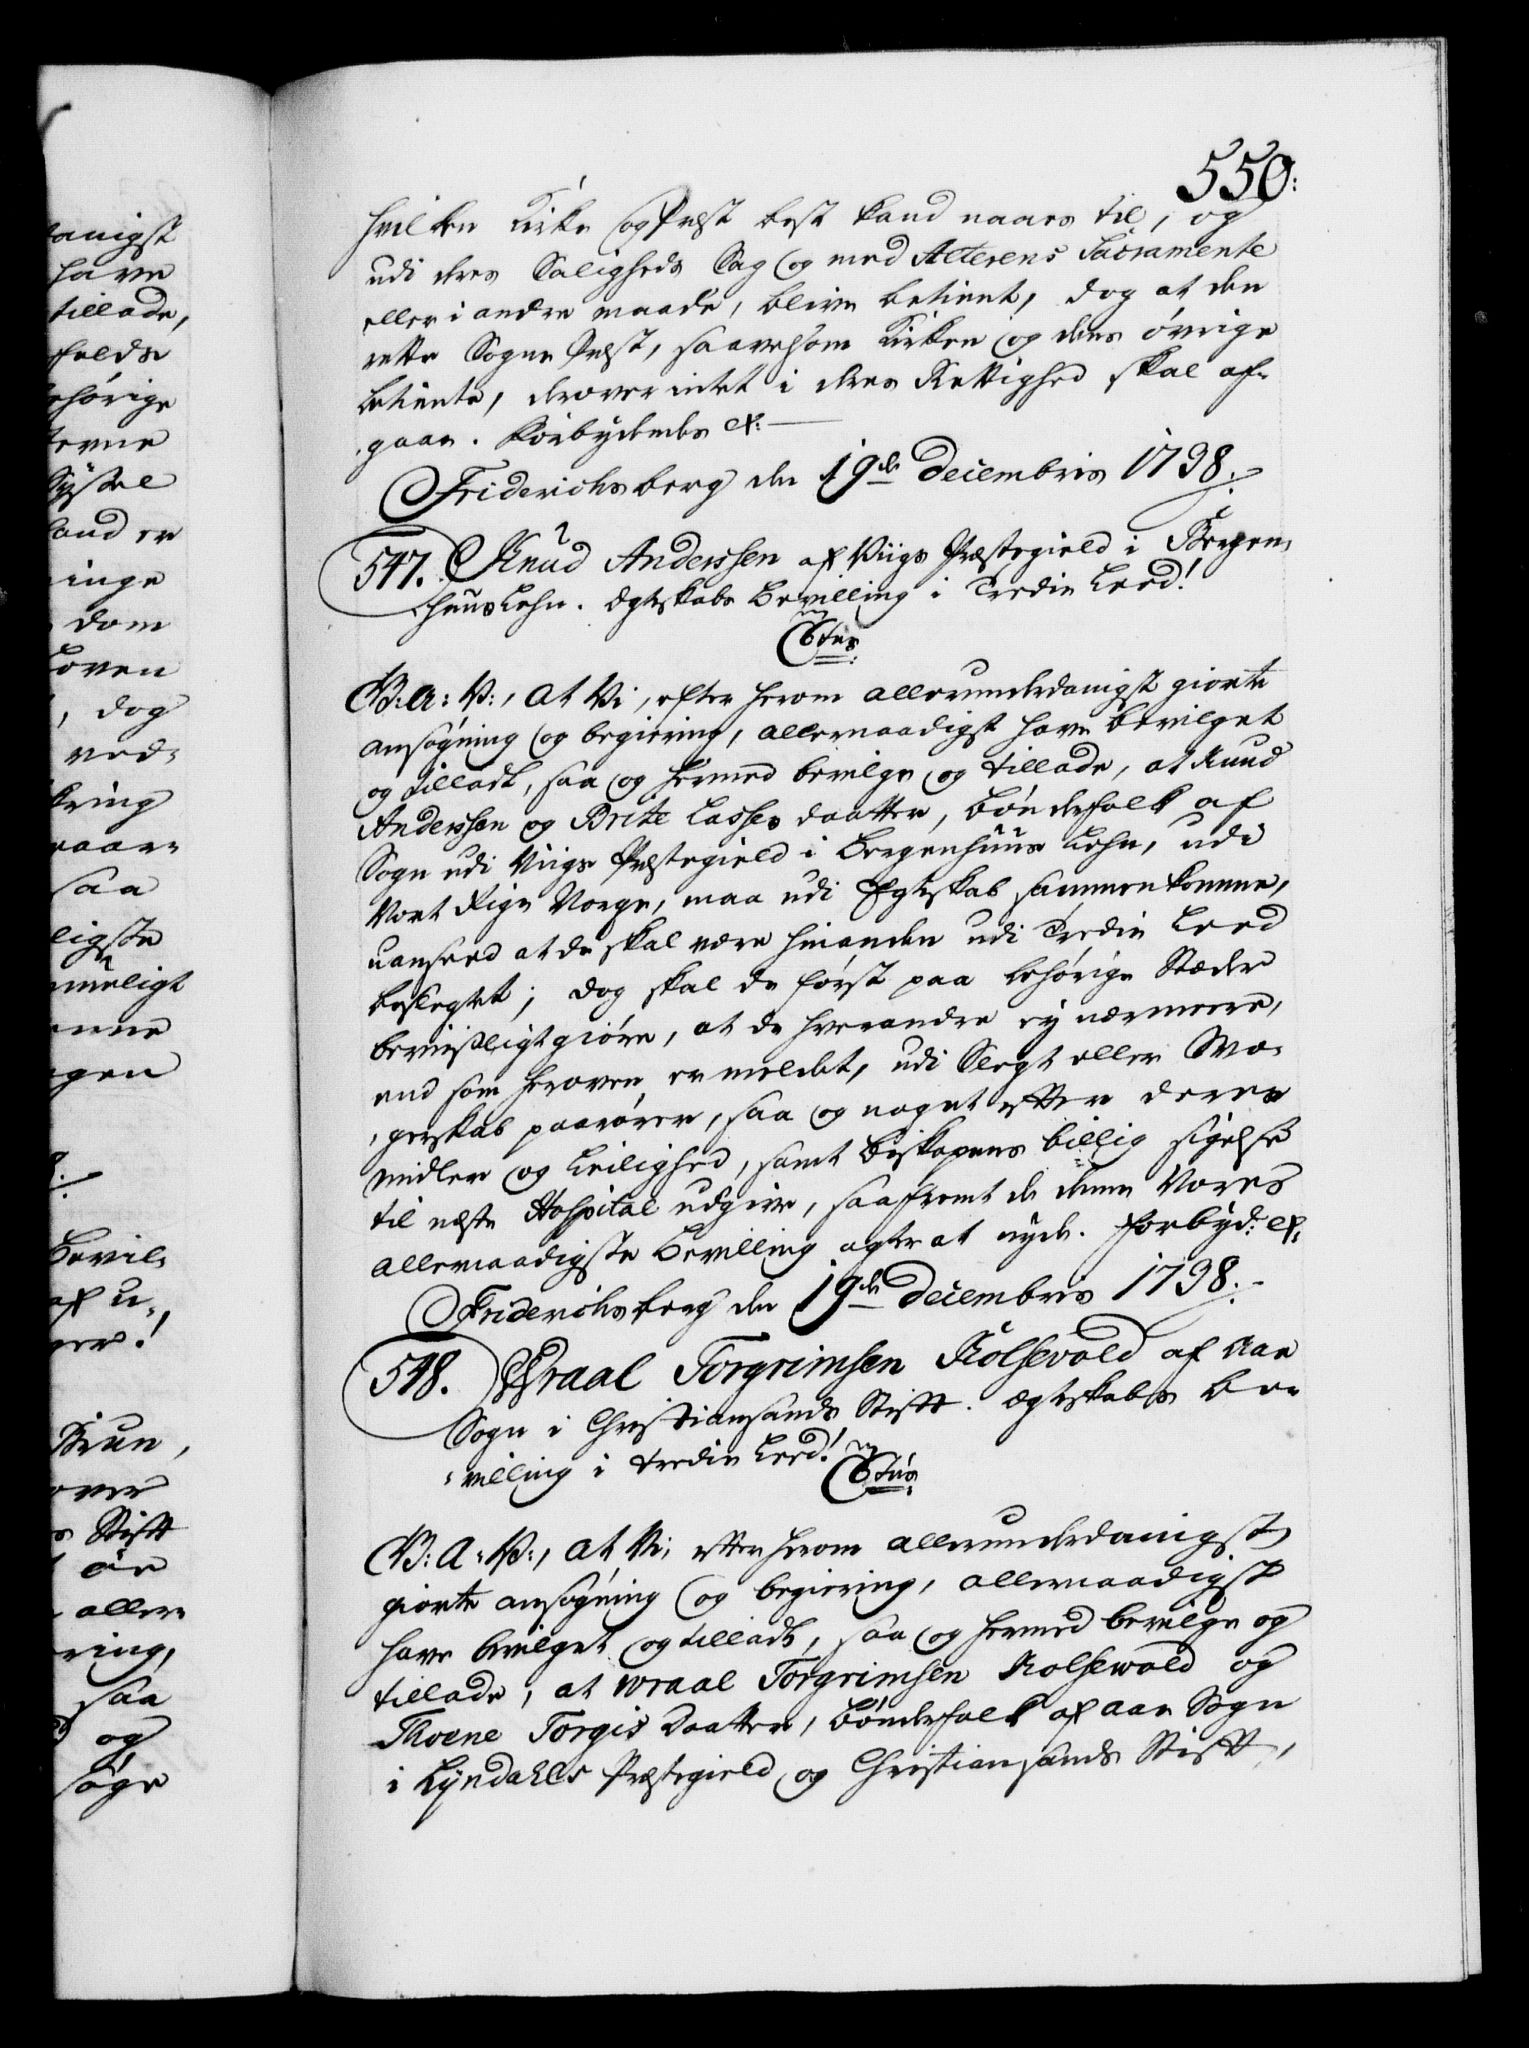 550:
hvilken Kirke og Præst best kand naaes til, og
udi deres Saligheds Sag og med Alterens Sacramente
eller i andre maade, blive betient, dog at den
rette Sogne Præst, saavelsom Kirken og dens øvrige
betiente, derover intet i deres Rettighed skal af-
gaae. Forbydendes &:
Friderichsberg den 19de Decembris 1738.
547. Knud Anderssen af Viigs Præstegield i Bergen-
huus Lehn. Ægteskabs Bevilling i Tredie Leed!
C6tus
V: A: V:, at Vi, efter herom allerunderdanigst giorte
ansøgning og begiering, allernaadigst have bevilget
og tilladt, saa og hermed bevilge og tillade, at Knud
Anderssen og Brite Lasses daatter, Bønderfolk af
Sogn udi Viigs Præstegield i Bergenhuus Lehn, udi
Vort Rige Norge, maa udi Egteskab sammenkomme,
uanseed at de skal være hinanden udi Tredie Leed
beslegtet; dog skal de først paa behørige Stæder
bevisligtgiøre, at de hverandre ey nærmere,
end som heroven er meldet, udi Slegt eller Svo-
gerskab paarører, saa og noget efter deres
midler og Leilighed, samt Biskopens billig sigelse
til neste Hospital udgive, saafremt de denne Vores
allernaadigste Bevilling agter at nyde. Forbyd: &:
Friderichsberg den 19de Decembris 1738.
548. Wraal Torgrimsen Rolsevold af Aae
Sogn i Christiansands Stift. Ægteskabs Be-
villing i tredie Leed!
C6tus
V: A: V:, at Vi, efter herom allerunderdanigst
giorte ansøgning og begiering, allernaadigst
have bevilget og tilladt, saa og hermed bevilge og
tillade, at Wraal Torgrimsen Rolsewold og
Thorne Torgis Daatter, Bønderfolk af Aae Sogn
i Lyndahls Præstegield og Christiansands Stift,